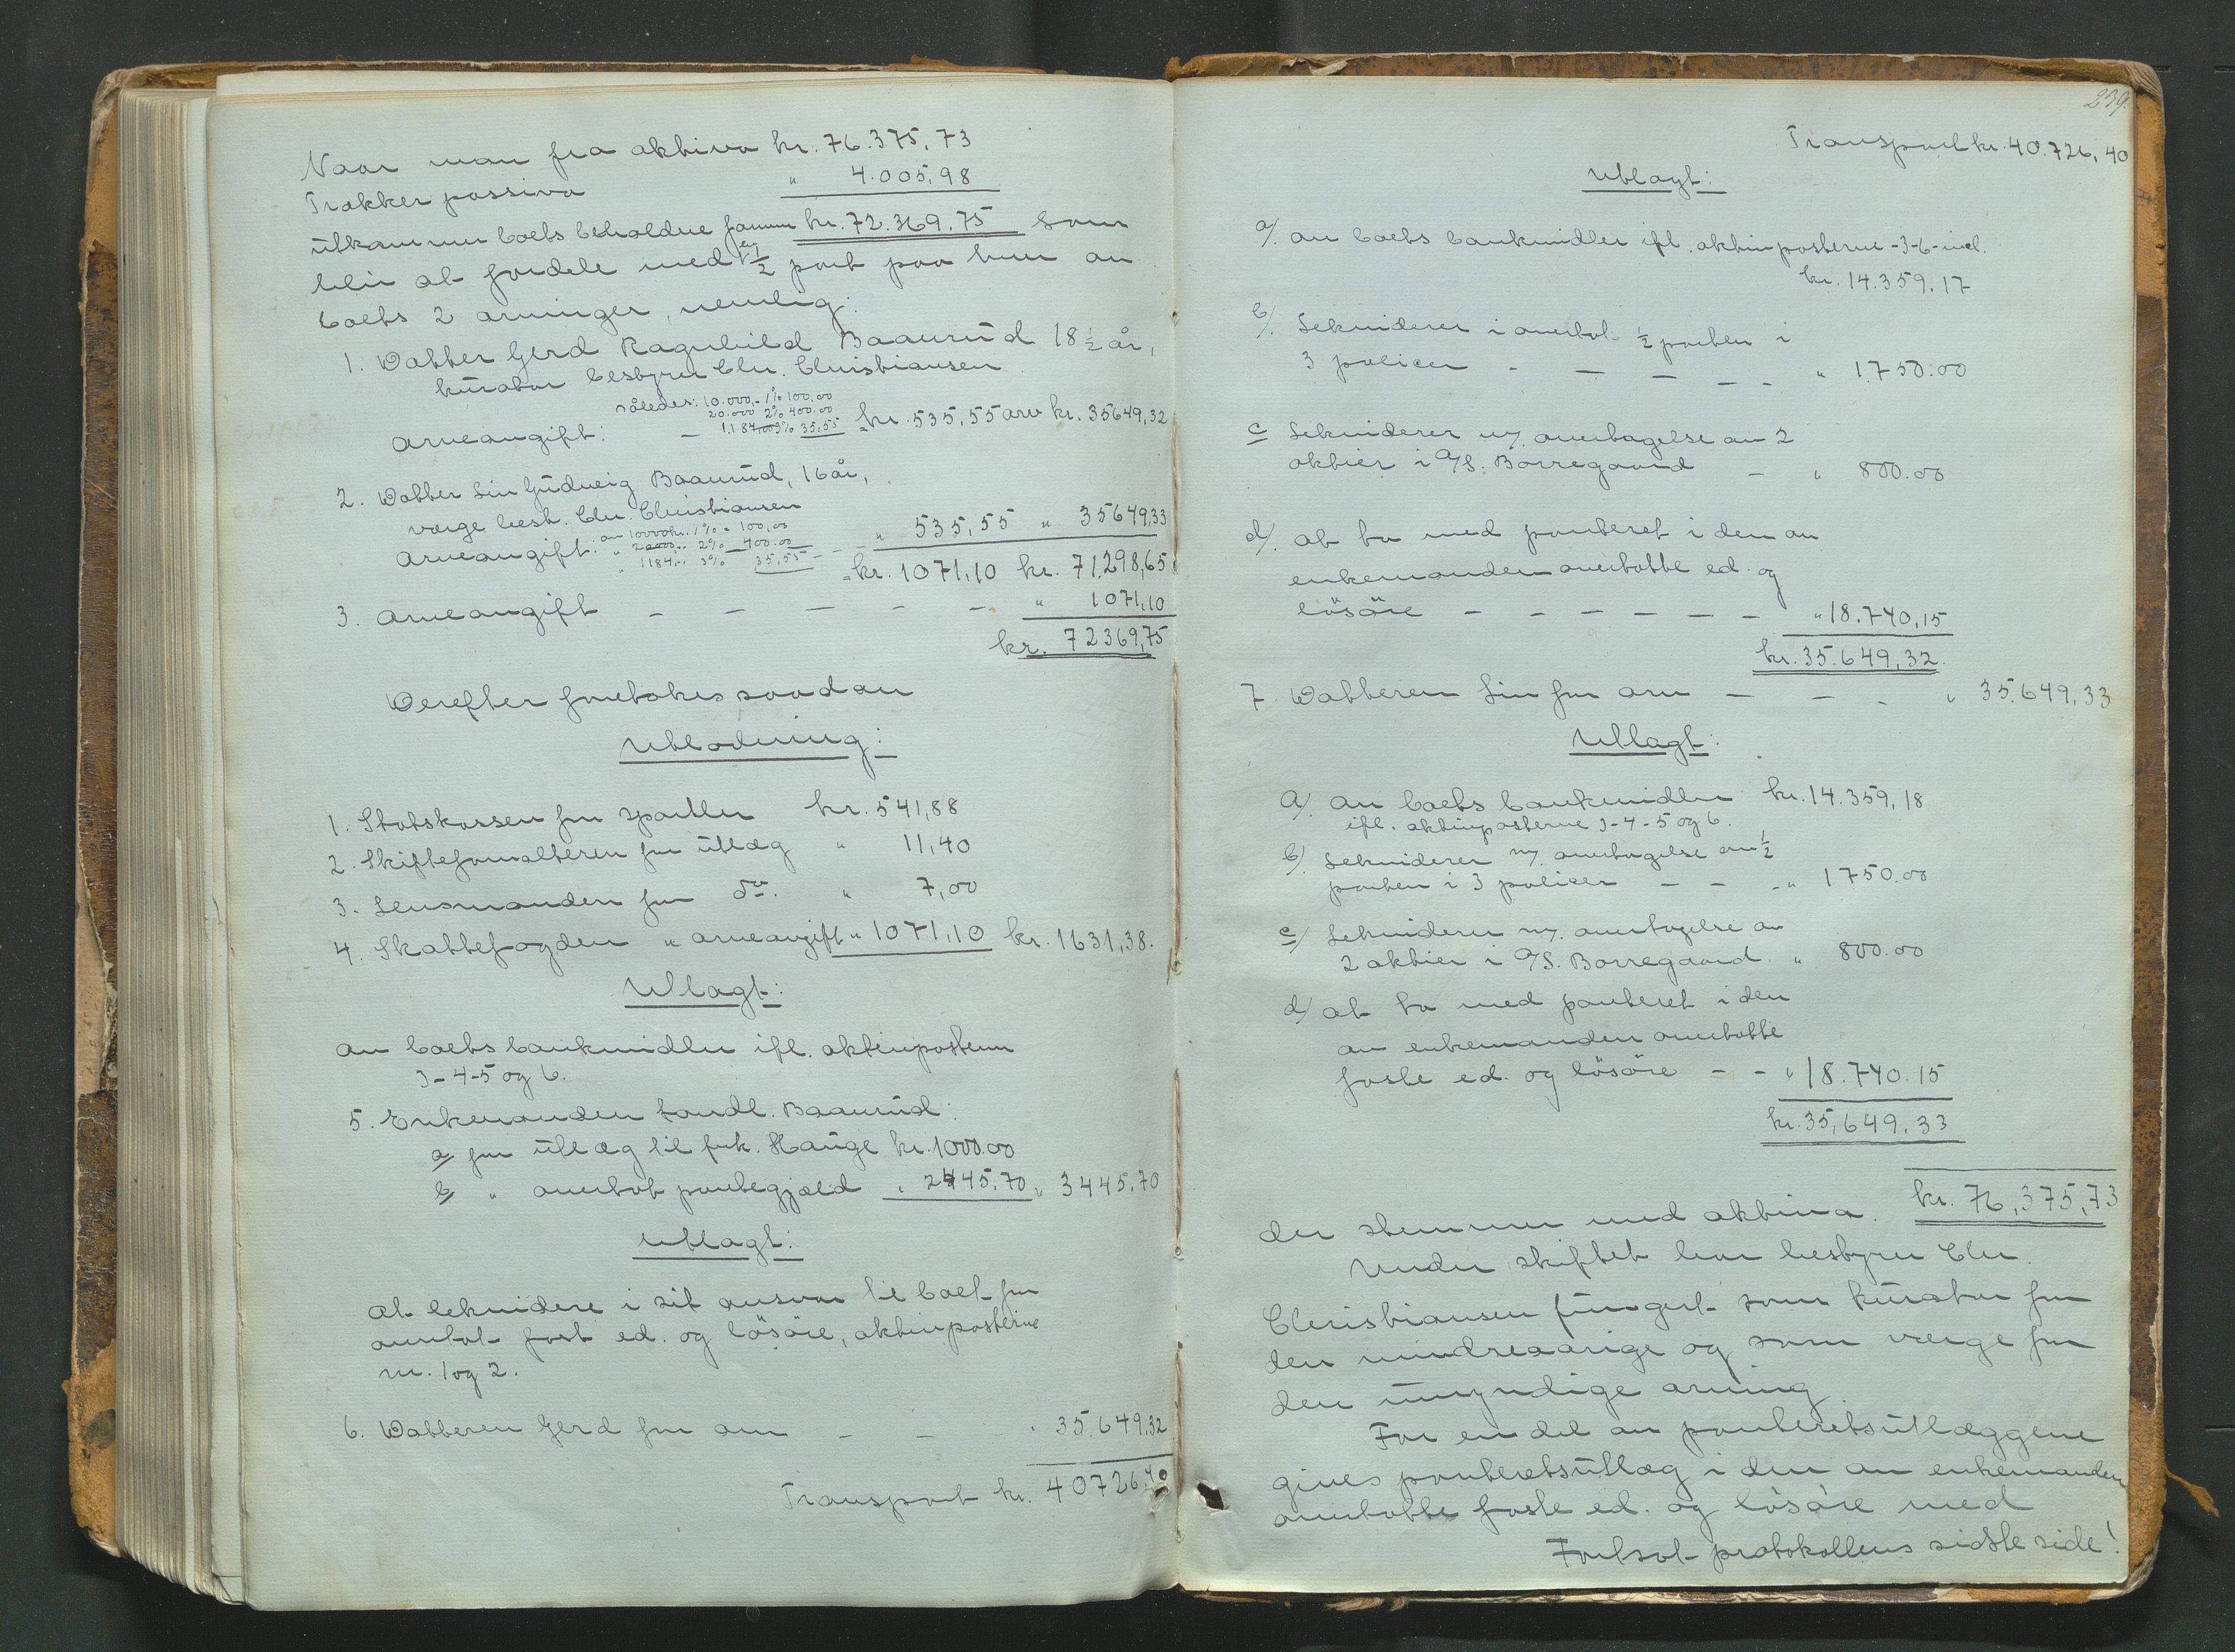 Naar man fra aktiva kr. 76.375,73
Trækker passiva " 4.005,98
utkommer boets beholdne formue kr. 72.369.75 som
blir at fordele med en ½ part paa hver av
boets 2 arvinger, nemlig:
1. Datter Gerd Ragnhild Baaurud 18½ år,
kurator bestyrer Chr. Christiansen
således: 10.000,- 1% 100,00
20.000 2% 400.00
Arveavgift: – 1,184,00 3% 35,55 = kr. 535,55 arv kr. 35649,32
2. Datter Liv Gudveig Baaurud, 16 år,
verge best. Chr. Christiansen
av 10000 kr. 1% = 100,00
Arveavgift: " 20000,- 2% 400.00 " 535,55 " 35649,33
" 1184,- 3% 35,55 – – = kr. 1071,10 kr. 71,298,65
3. Arveavgift – – – – – " 1071,10
kr. 72369,75
Derefter foretokes saadan
Utlodning:
1. Statskassen for sportler kr. 541,88
2. Skifteforvalteren for utlæg " 11,40
3. Lensmanden for do. " 7,00
4. Skattefogden " arveavgift " 1071,10 kr. 1631,38.
Utlagt:
av boets bankmidler ifl. aktivposterne
3-4-5 og 6.
5. Enkemanden Baaurud:
a/ for utlæg til frk. Hauge kr. 1000.00
b/ " overtat pantegjæld " 2445,70 " 3445,70
Utlagt:
At lekvidere i sit ansvar til boet for
overtat fast ed. og løsøre, aktivposterne
nr. 1 og 2.
6. Datteren Gerd for arv – – " 35,649,32
Transport kr. 40726,40
239.
Transport kr. 40.726,40
Utlagt:
a/. av boets bankmidler ifl. aktivposterne -3-6- incl.
kr. 14.359.17
b/. Lekviderer i overtat ½ parten i
3 policer - – – – - " 1.750.00
c Lekviderer v/. overtagelse av 2
aktier i A/S. Borregaard – " 800.00
d/. at ta med panteret i den av
enkemanden overtatte ed. og
løsøre – – – – – – " 18.740,15
kr. 35.649,32.
7. Datteren Liv for arv – – - " 35.649,33
Utlagt:
a/. av boets bankmidler kr. 14.359,18
ifl. aktivposterne 3-4-5 og 6.
b/. Lekviderer v/. overtagelse av ½
parten i 3 policer – – -" 1750.00
c/ Lekviderer v/. overtagelse av
2 aktier i A/S. Borregaard. " 800.00
d/ at ta med panteret i den
av enkemanden overtatte
faste ed. og løsøre – - " 18.740.15
kr. 35,649.33
der stemmer med aktiva. kr. 76,375,73
Under skiftet har bestyrer Chr.
Christiansen fungert som kurator for
den mindreaarige og som verge for
den umyndige arving.
For en del av panteretsutlæggene
gives panteretsutlæg i den av enkemanden
overtatte faste ed. og løsøre med
Fortsat protokollens sidste side!